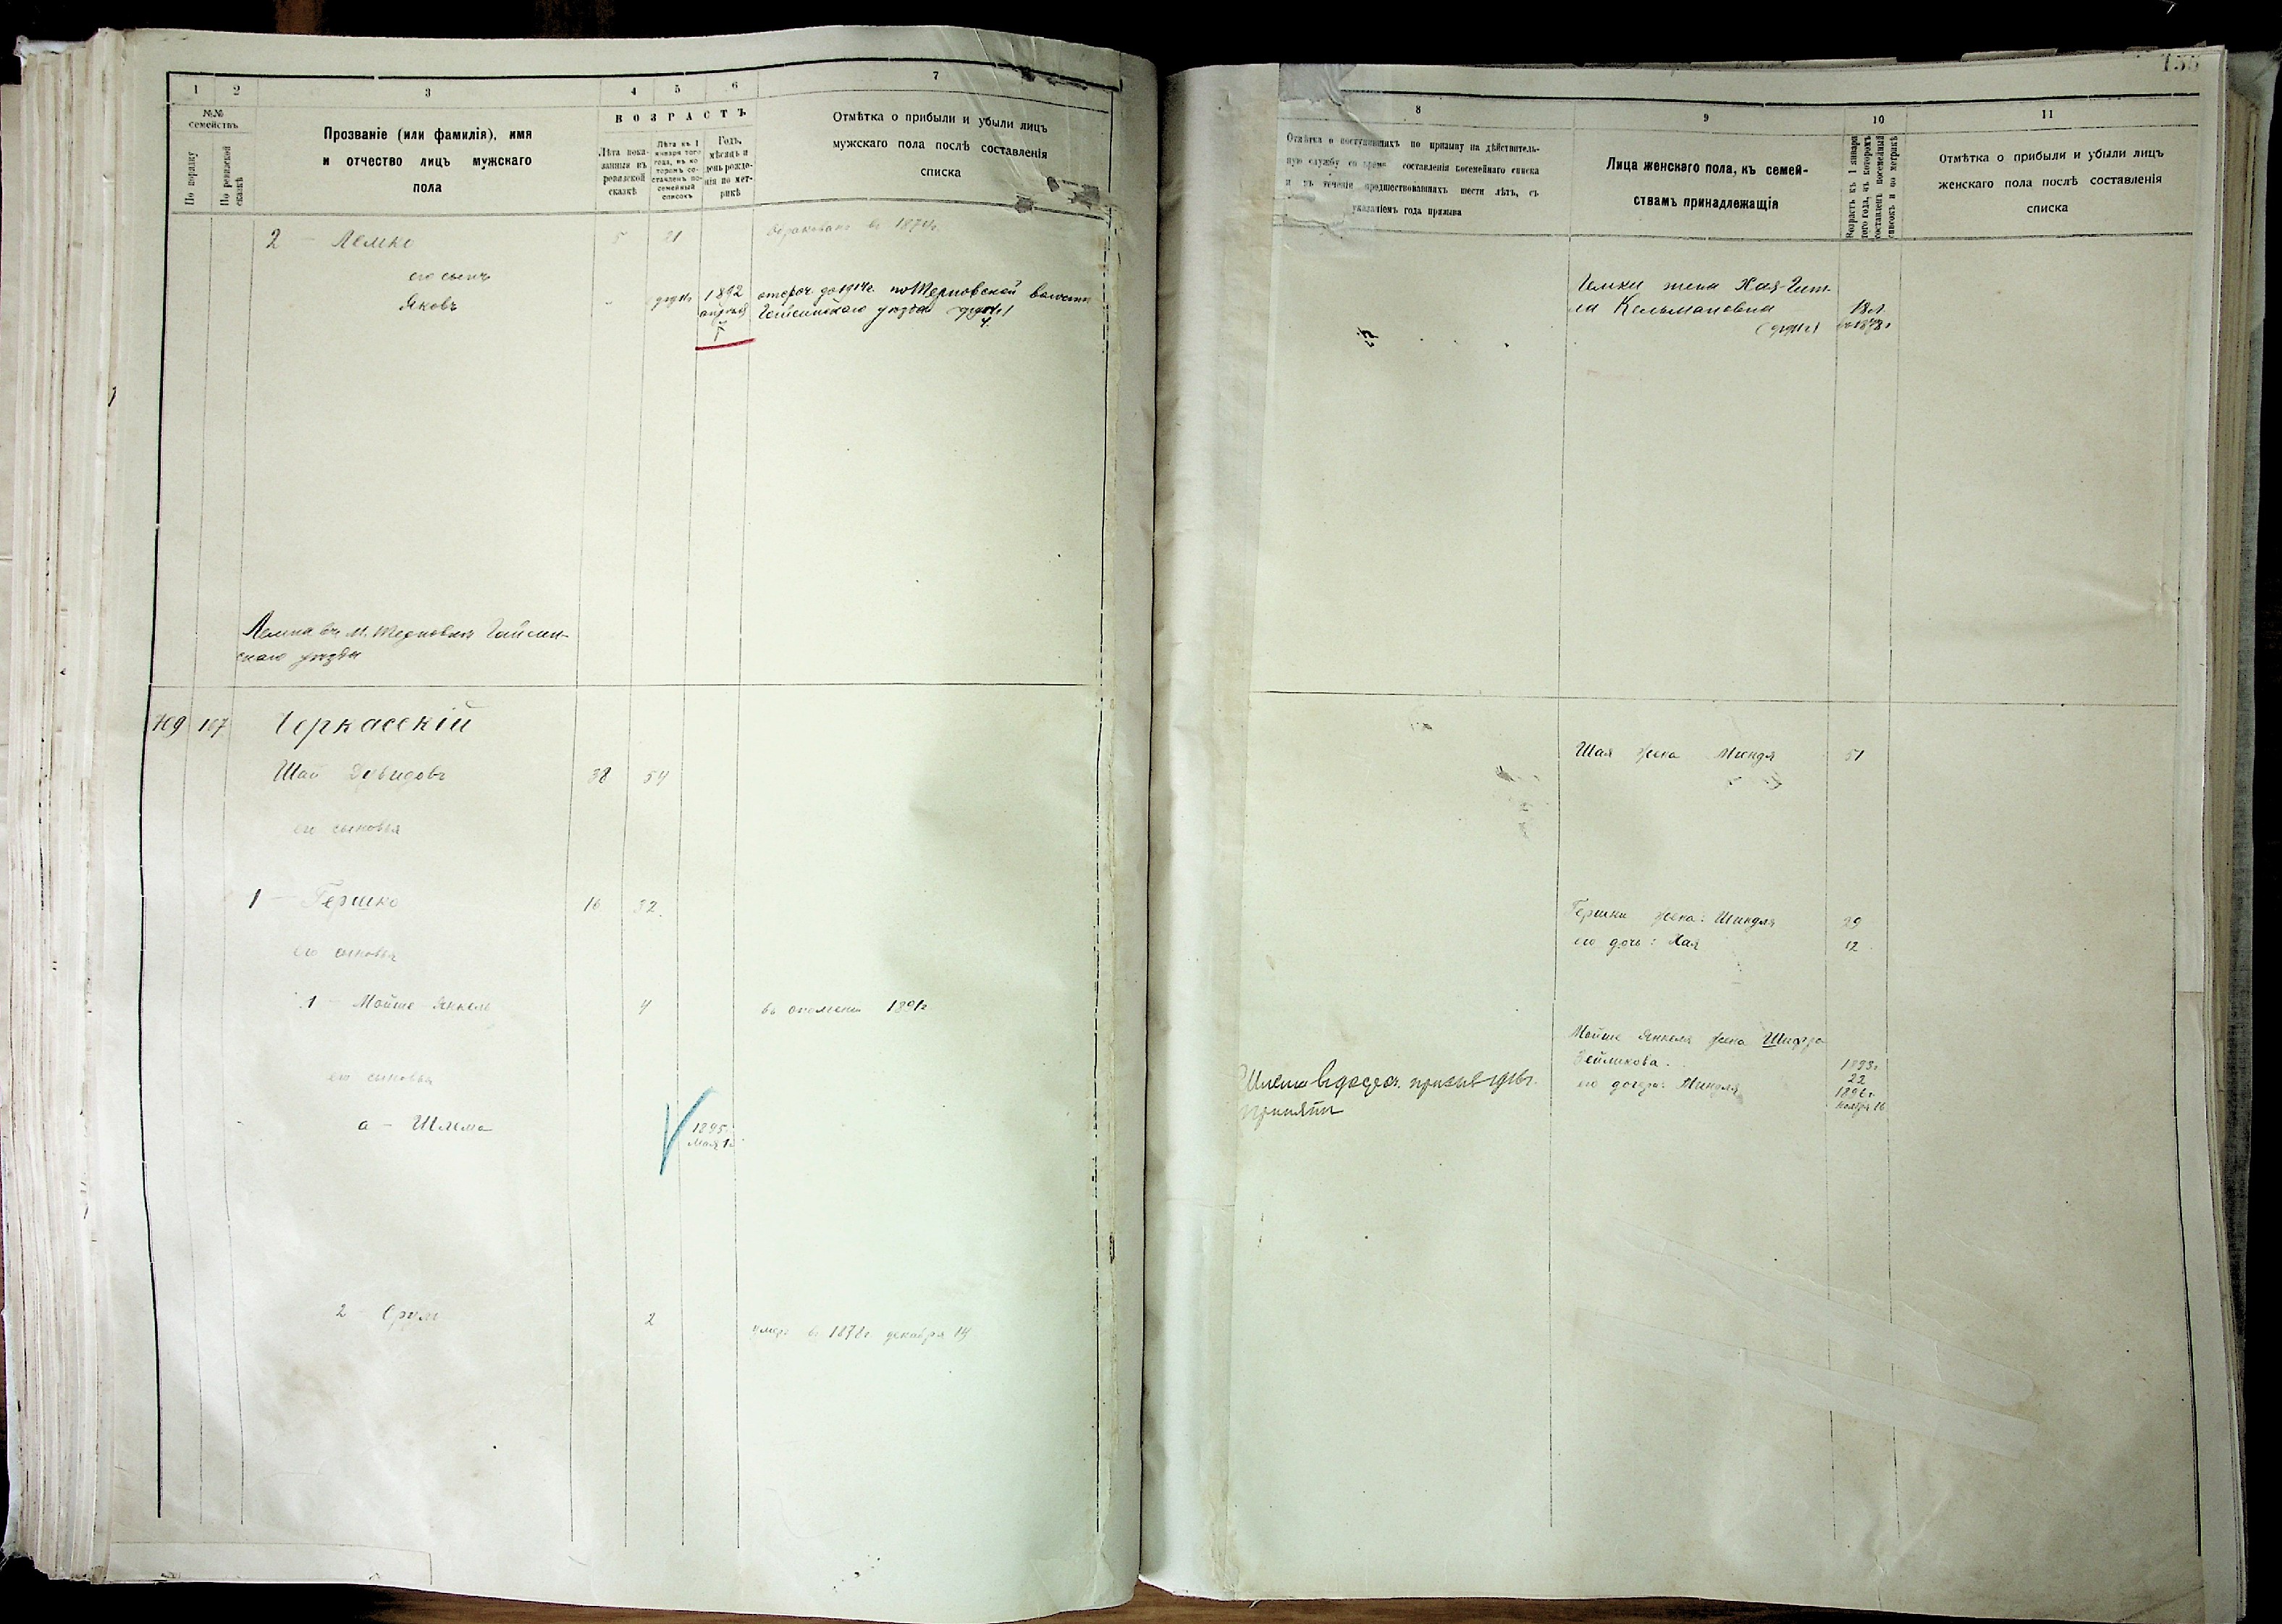 1 2 3 4 5 6 7
№№ семействъ
По порядку
По ревизской сказкѣ
Прозваніе (или фамилія), имя
и отчество лицъ мужскаго
пола
ВОЗРАСТЪ
Лѣта пока-
занныя въ
ревизской
сказкѣ
Лѣта къ 1
января того
года, въ ко-
торомъ со-
ставленъ по-
семейный
списокъ
Годъ,
мѣсяцъ и
день рожде-
нія по мет-
рикѣ
Отмѣтка о прибыли и убыли лицъ
мужскаго пола послѣ составленія
списка
2 — Лемко 5 21 1874г.
его сынъ
Яковъ 1892 отсроч. до 1914г. по Терновской волости
апрѣля Гайсинскаго уѣзда
Лемка въ м. Терновкѣ Гайсин-
скаго уѣзда
469 167 Черкасскій
Шая Давидовъ 38 54
его сыновья
1 — Гершко 16 32
его сыновья
1 — Мойше Янкель 4 въ 1891г
его сыновья
а — Шлема 1895г.
мая
2 — Срул 2 умеръ въ 1878г. декабря 14
8 9 10 11
Отмѣтка о поступившихъ по призыву на дѣйствитель-
ную службу со время составленія посемейнаго списка
и въ теченіи предшествовавшихъ шести лѣтъ, съ
указаніемъ года призыва
Лица женскаго пола, къ семей-
ствамъ принадлежащія
Возрастъ къ 1 января
того года, въ которомъ
составленъ посемейный
списокъ и по метрикѣ
Отмѣтка о прибыли и убыли лицъ
женскаго пола послѣ составленія
списка
Лемки жена Хая-Гит-
ля Кельмановна 18л.
Шая жена Миндя 51
Гершки жена: Шиндля 29
его дочь: Хая 12
Мойше Янкеля жена Шифра
Зейликова. 1893г
22
его дочери: Миндля 1896г.
ноября 16
Шлема въ досроч. призывъ 1916г.
принятъ